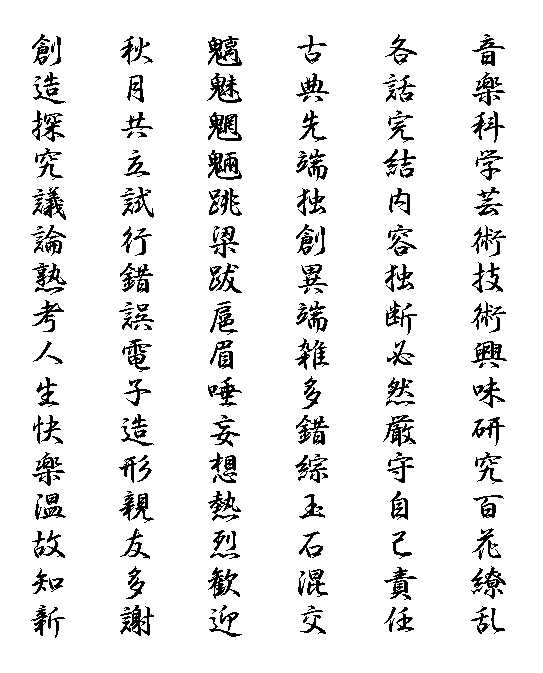 音楽科学芸術技術興味研究百花繚乱
各話完結内容独断必然厳守自己責任
古典先端独創異端雑多錯綜玉石混交
魑魅魍魎跳梁跋扈眉唾妄想熱烈歓迎
秋月共立試行錯誤電子造形親友多謝
創造探究議論熟考人生快楽温故知新